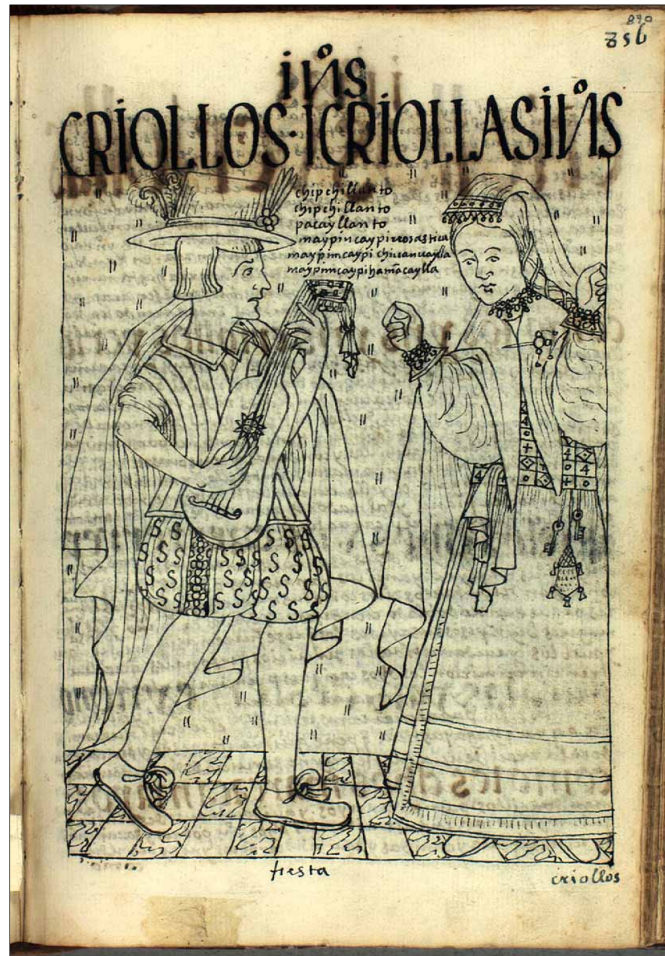 890
856
in̊s
CRIOLLOS·ICRIOLLASIN̊S
chipchillanto
chipchillanto
pacayllanto
maypincaypi rrosastica
maypincaypi chiuanuaylla
maypincaypi hamācaylla
fiesta
criollos